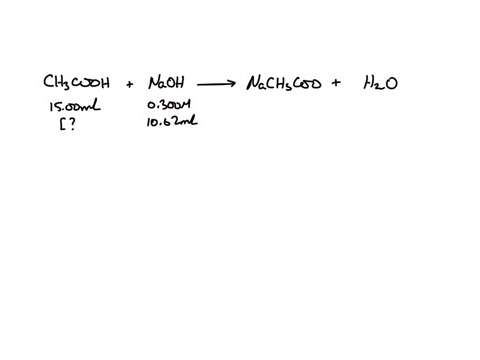 CH3COOH + NaOH → NaCH3COO + H2O
15.00ml 0.300M
[? 10.62ml